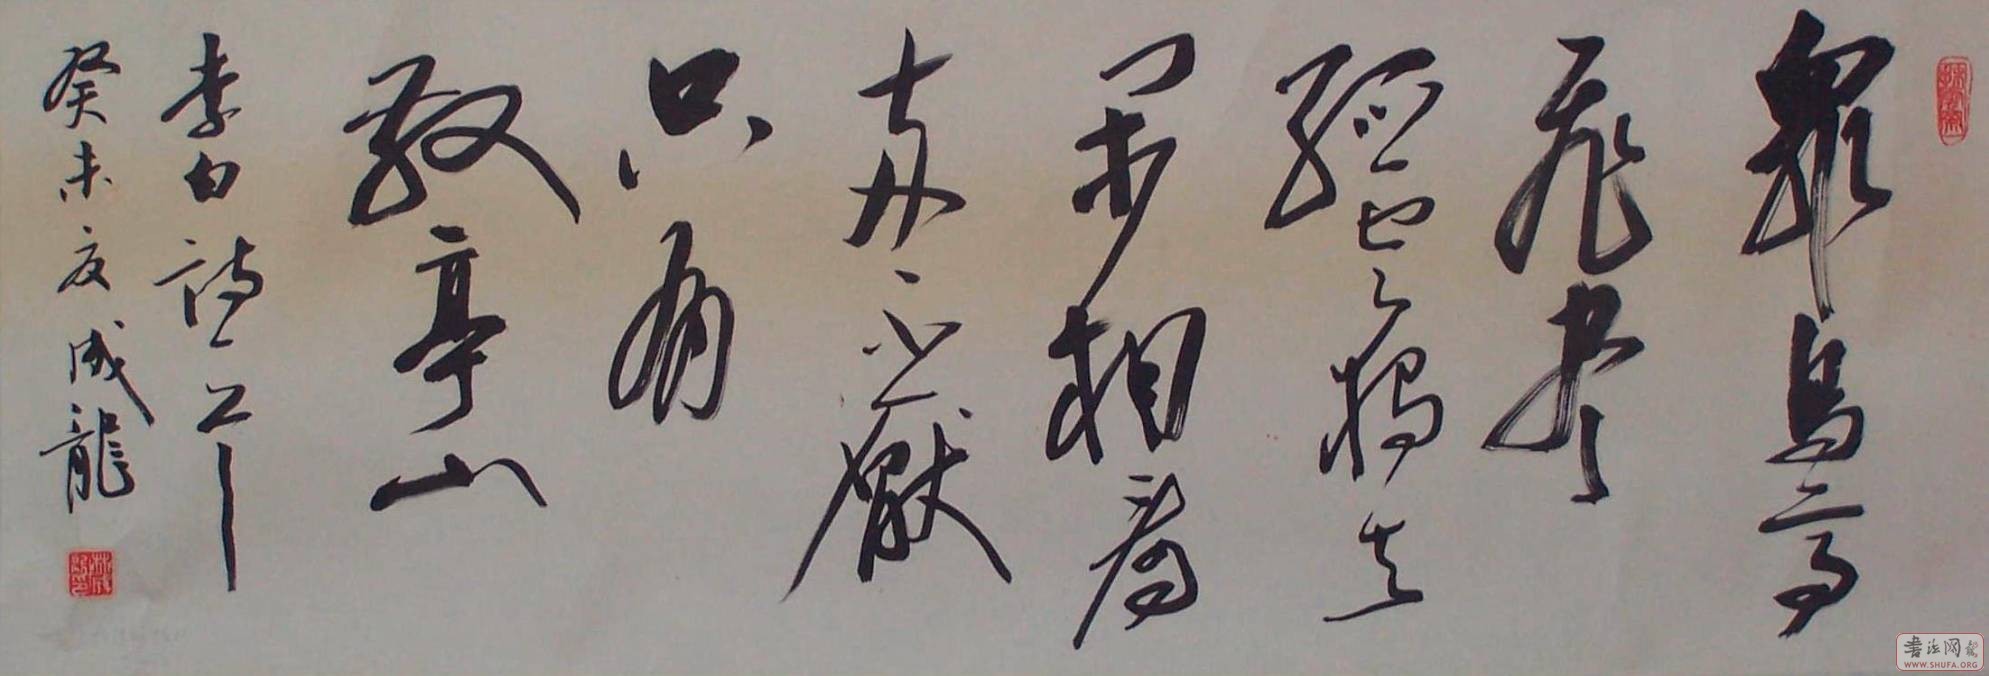 眾鳥高
飛盡
孤雲獨去
閑相看
兩不厭
只有
敬亭山
李白詩
癸未夏成龍
林成龍印
書法网
WWW.SHUFA.ORG